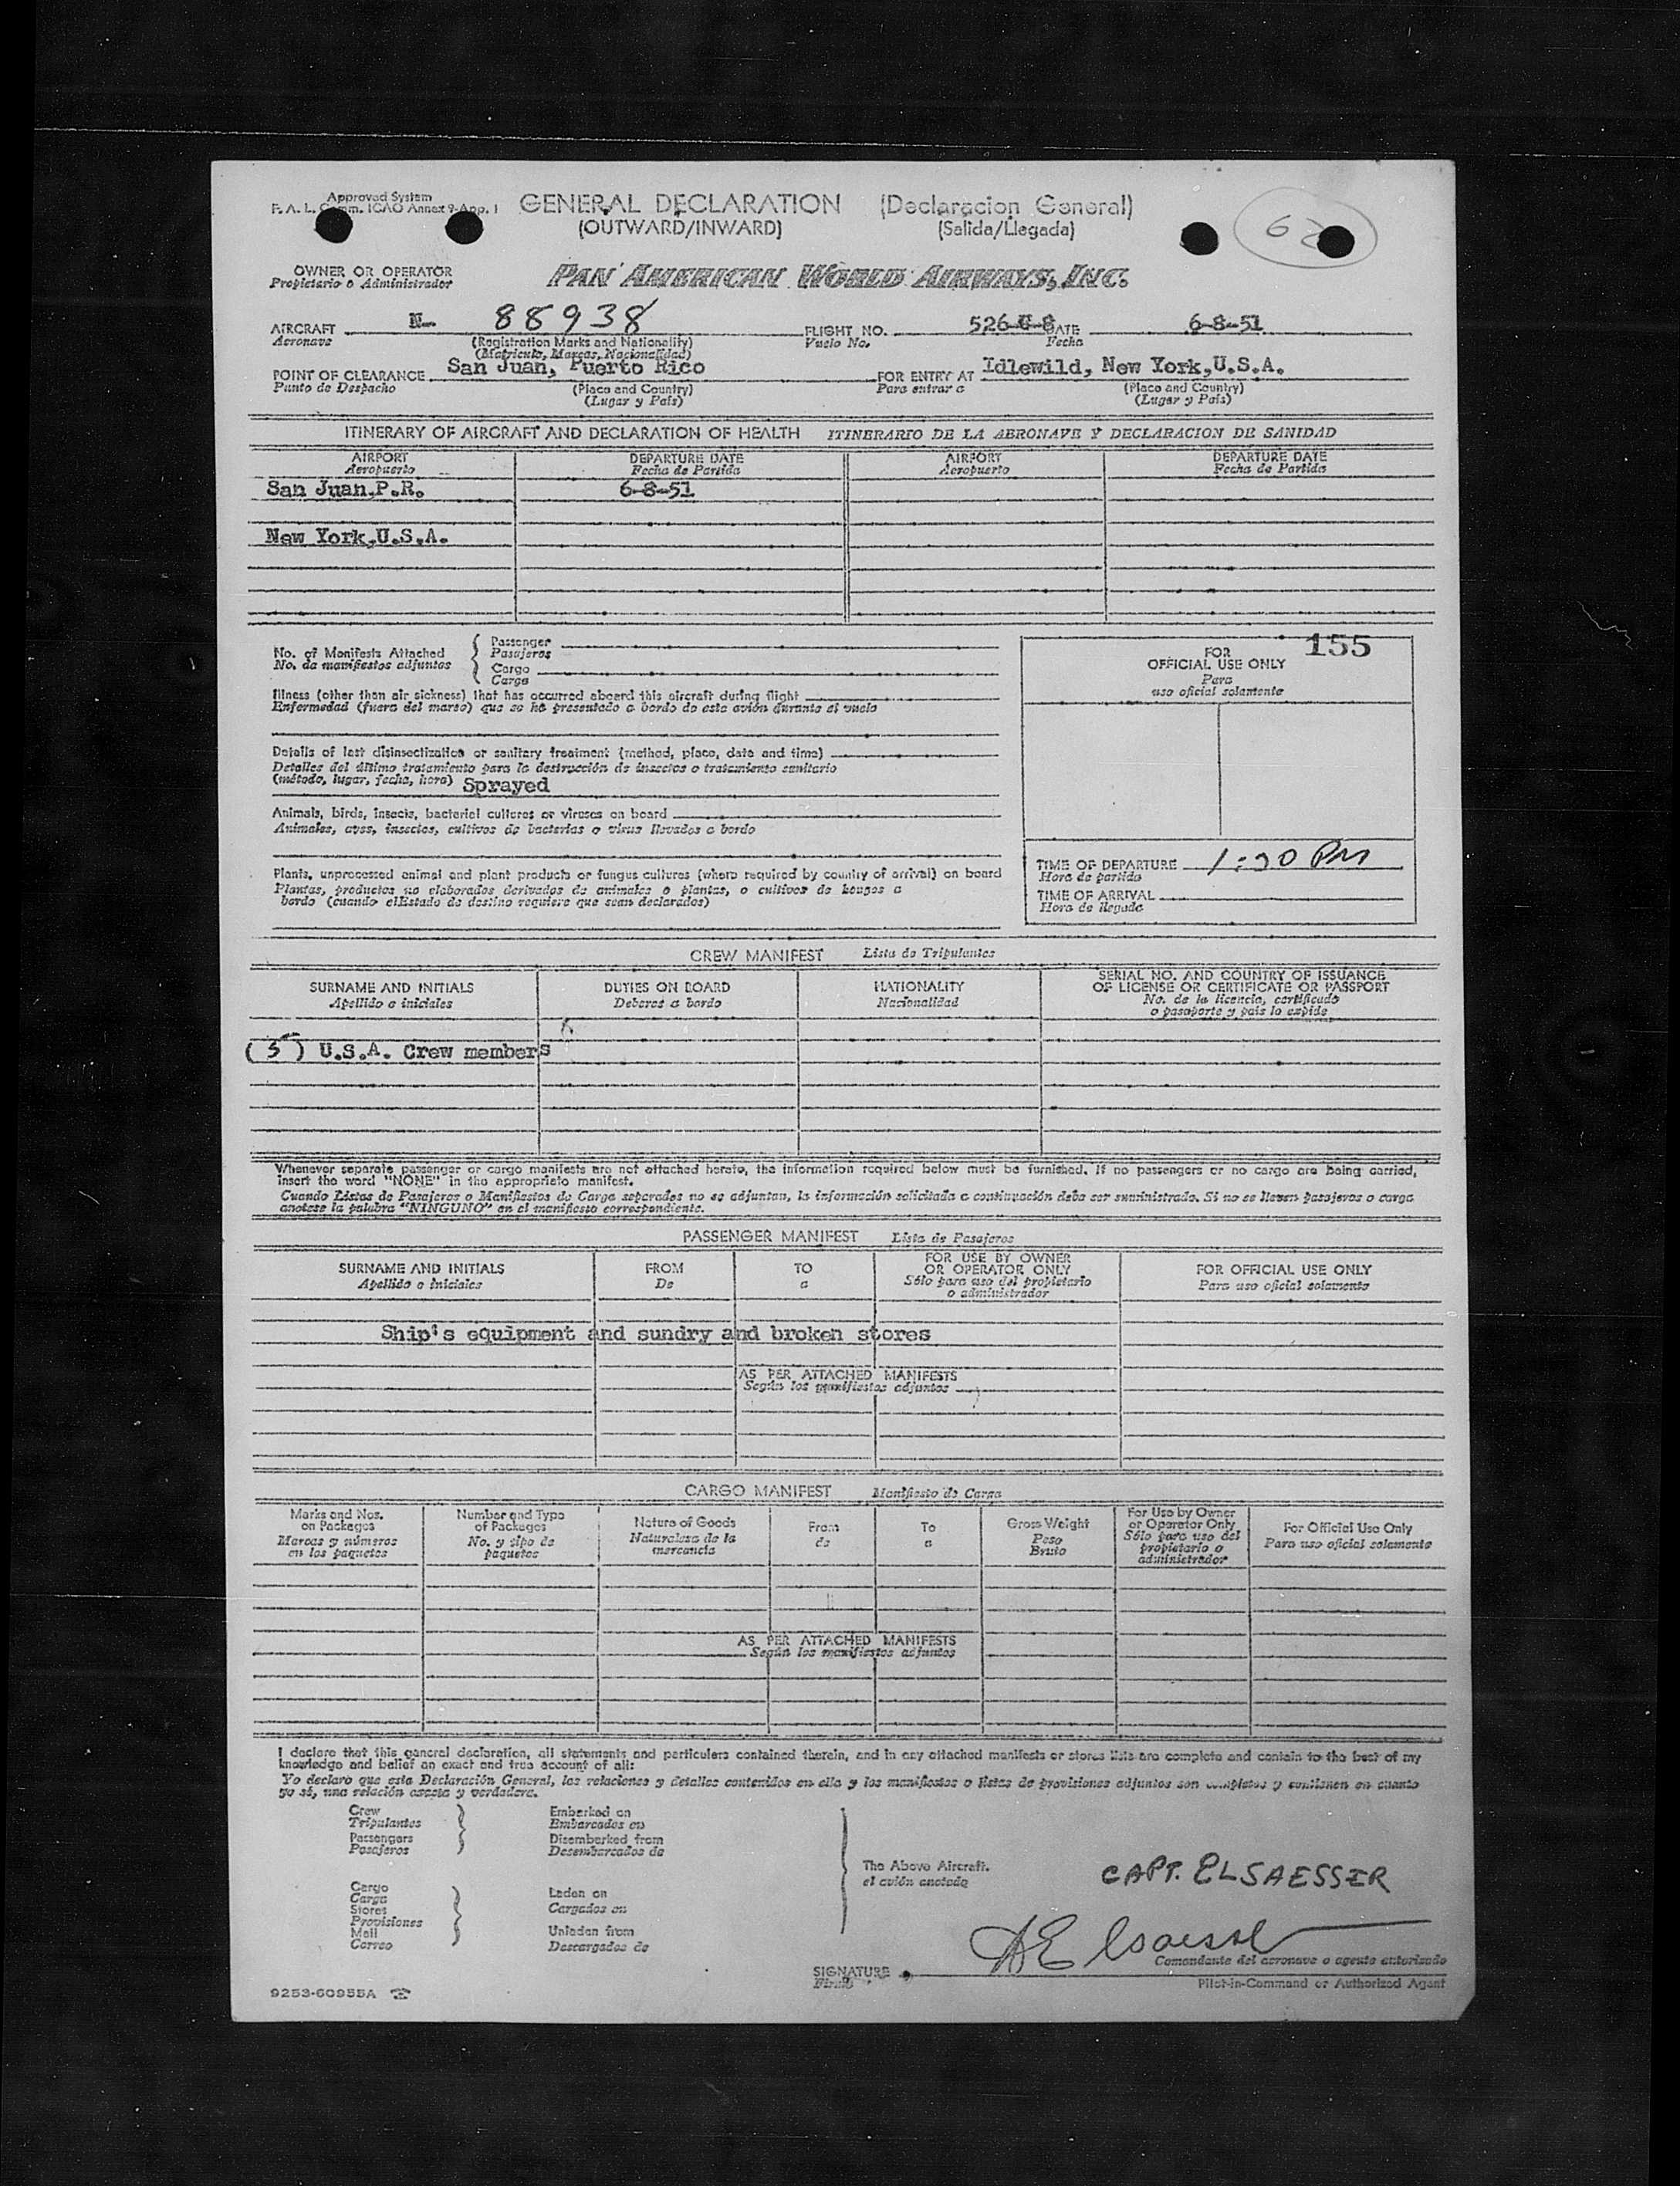 Approved System
F. A. L. Comm. ICAO Annex 9-App. 1
GENERAL DECLARATION (Declaracion General)
(OUTWARD/INWARD) (Salida/Llegada)
62
OWNER OR OPERATOR
Propietario o Administrador
PAN AMERICAN WORLD AIRWAYS, INC.
AIRCRAFT N- 88938 FLIGHT NO. 526-U-8 DATE 6-8-51
Aeronave (Registration Marks and Nationality) Vuelo No. Fecha
(Matricula, Marcas, Nacionalidad)
POINT OF CLEARANCE San Juan, Puerto Rico FOR ENTRY AT Idlewild, New York,U.S.A.
Punto de Despacho (Place and Country) Para entrar a (Place and Country)
(Lugar y País) (Lugar y País)
ITINERARY OF AIRCRAFT AND DECLARATION OF HEALTH ITINERARIO DE LA AERONAVE Y DECLARACION DE SANIDAD
AIRPORT DEPARTURE DATE AIRPORT DEPARTURE DATE
Aeropuerto Fecha de Partida Aeropuerto Fecha de Partida
San Juan.P.R. 6-8-51
New York,U.S.A.
No. of Manifests Attached
No. de manifiestos adjuntos
Passenger
Pasajeros
Cargo
Carga
Illness (other than air sickness) that has occurred aboard this aircraft during flight
Enfermedad (fuera del mareo) que se ha presentado a bordo de este avión durante el vuelo
Details of last disinsectization or sanitary treatment (method, place, date and time)
Detalles del último tratamiento para la destrucción de insectos o tratamiento sanitario
(método, lugar, fecha, hora) Sprayed
Animals, birds, insects, bacterial cultures or viruses on board
Animales, aves, insectos, cultivos de bacterias o virus llevados a bordo
Plants, unprocessed animal and plant products or fungus cultures (where required by country of arrival) on board
Plantas, productos no elaborados derivados de animales o plantas, o cultivos de hongos a
bordo (cuando elEstado de destino requiere que sean declarados)
155
FOR
OFFICIAL USE ONLY
Para
uso oficial solamente
TIME OF DEPARTURE 1:30 PM
Hora de partida
TIME OF ARRIVAL
Hora de llegada
CREW MANIFEST Lista de Tripulantes
SURNAME AND INITIALS DUTIES ON BOARD NATIONALITY SERIAL NO. AND COUNTRY OF ISSUANCE
OF LICENSE OR CERTIFICATE OR PASSPORT
Apellido e iniciales Deberes a bordo Nacionalidad No. de la licencia, certificado
o pasaporte y país lo expide
( 5 ) U.S.A. Crew members
Whenever separate passenger or cargo manifests are not attached hereto, the information required below must be furnished. If no passengers or no cargo are being carried,
insert the word "NONE" in the appropriate manifest.
Cuando Listas de Pasajeros o Manifiestos de Carga separados no se adjuntan, la información solicitada a continuación debe ser suministrada. Si no se llevan pasajeros o carga
anótese la palabra "NINGUNO" en el manifiesto correspondiente.
PASSENGER MANIFEST Lista de Pasajeros
SURNAME AND INITIALS FROM TO FOR USE BY OWNER FOR OFFICIAL USE ONLY
OR OPERATOR ONLY
Apellido e iniciales De a Sólo para uso del propietario Para uso oficial solamente
o administrador
Ship's equipment and sundry and broken stores
AS PER ATTACHED MANIFESTS
Según los manifiestos adjuntos
CARGO MANIFEST Manifiesto de Carga
Marks and Nos. Number and Type Nature of Goods From To Gross Weight For Use by Owner For Official Use Only
on Packages of Packages or Operator Only
Marcas y números No. y tipo de Naturaleza de la de a Peso Sólo para uso del Para uso oficial solamente
en los paquetes paquetes mercancia Bruto propietario o
administrador
AS PER ATTACHED MANIFESTS
Según los manifiestos adjuntos
I declare that this general declaration, all statements and particulars contained therein, and in any attached manifests or stores lists are complete and contain to the best of my
knowledge and belief an exact and true account of all:
Yo declaro que esta Declaración General, las relaciones y detalles contenidos en ella y los manifiestos o listas de provisiones adjuntos son completos y contienen en cuanto
yo sé, una relación exacta y verdadera.
Crew Embarked on
Tripulantes Embarcados en
Passengers Disembarked from
Pasajeros Desembarcados de
The Above Aircraft.
el avión anotado
Cargo Laden on
Carga Cargados en
Stores
Provisiones
Mail Unladen from
Correo Descargados de
CAPT. ELSAESSER
A E lsaesser
Comandante del aeronave o agente autorizado
SIGNATURE
Firma
Pilot-in-Command or Authorized Agent
9253-60955A